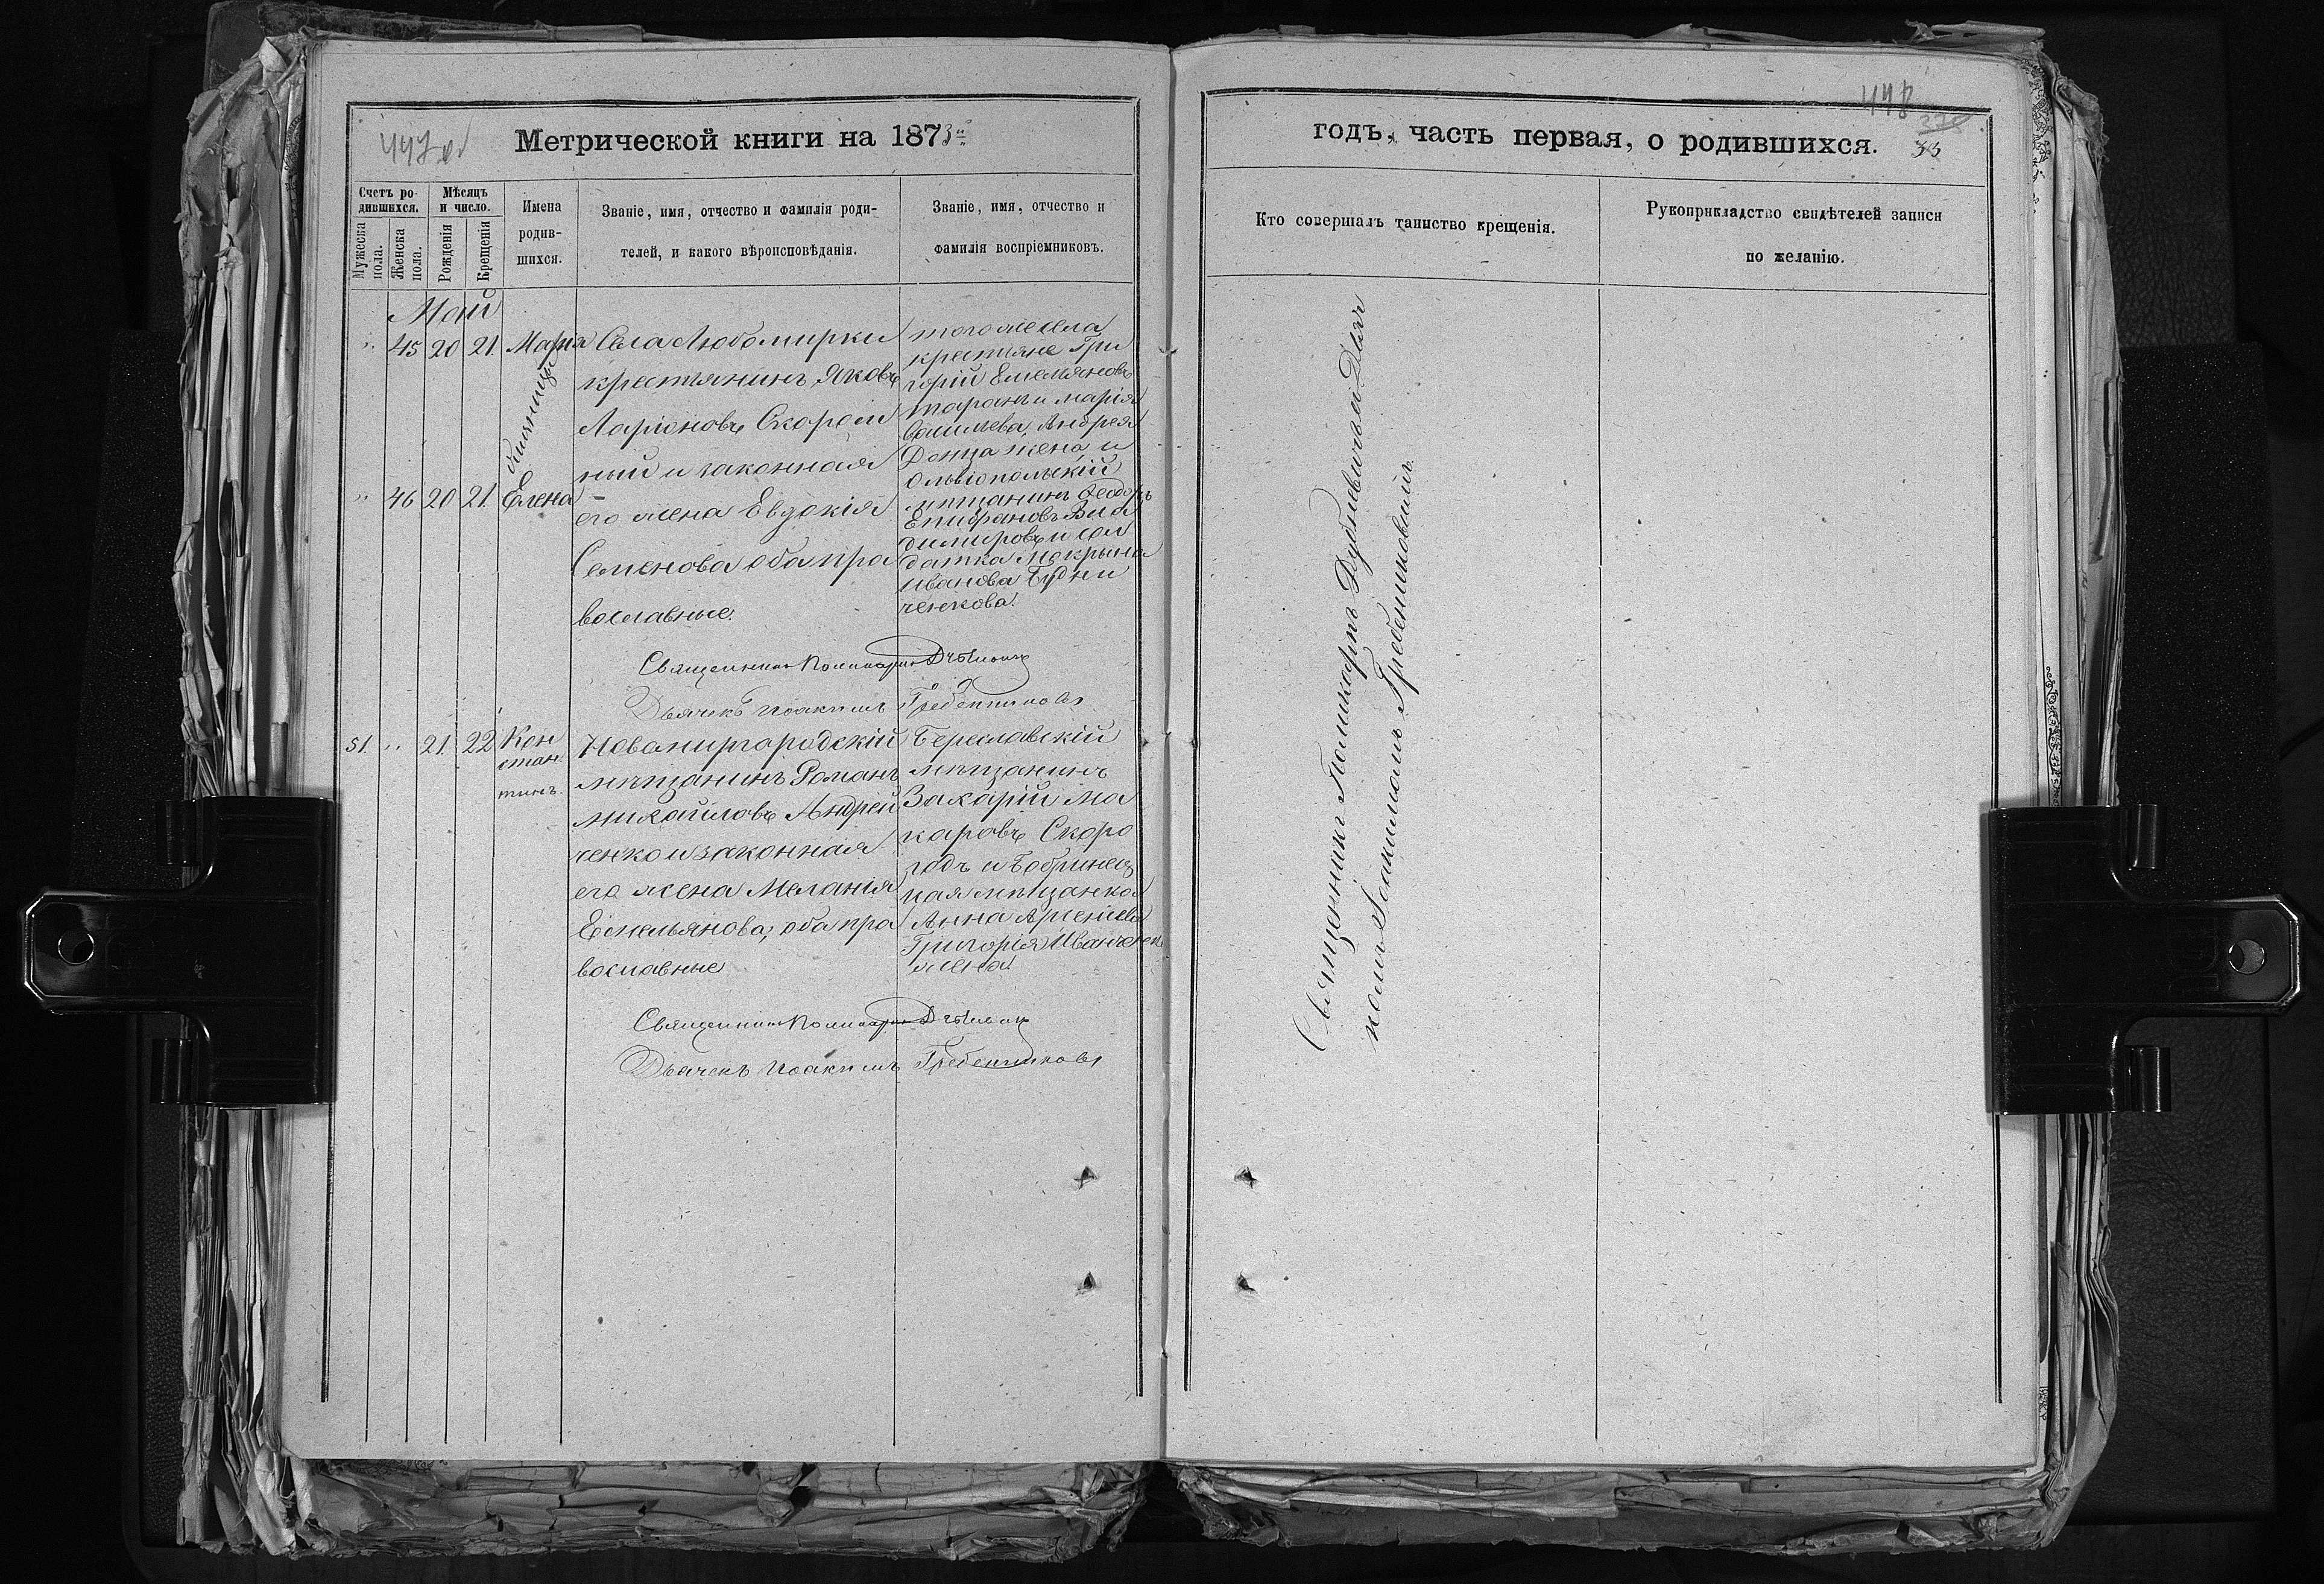 447 об
Метрической книги на 1873й
Счетъ ро-
дившихся.
Мѣсяцъ
и число.
Мужеска
пола.
Женска
пола.
Рожденія
Крещенія
Имена
родив-
шихся.
Званіе, имя, отчество и фамилія роди-
телей, и какого вѣроисповѣданія.
Званіе, имя, отчество и
фамилія воспріемниковъ.
Май
" 45 20 21. Марія
близницы
" 46 20 21. Елена
Села Любомирки
крестьянинъ Яковъ
Ларіоновъ Скором
ный и законная
его жена Евдокія
Семенова оба пра
вославные.
того же села
крестьяне Гри
горій Емельяновъ
Таранъ и Марія
Васильева, Андрея
Донца жена, и
Ольвіопольскій
мѣщанинъ Феодоръ
Епифановъ Вла
димировъ и сол
датка Мокрына
Иванова Будни
ченкова.
Священникъ Поликарпъ
Дьячекъ Іоакимъ Гребенниковъ
51. " 21. 22 Кон
стан
тинъ.
Новомиргородскій
мѣщанинъ Романъ
Михайловъ Андрей
ченко и законная
его жена Меланія
Емельянова, оба пра
вославные
Береславскій
мѣщанинъ
Захарій Ма
каровъ Скоро
родъ и Бобринец
кая мѣщанка
Анна Арсеніева
Григорія Иванченка
жена
Священникъ Поликарпъ
Дьячекъ Іоакимъ Гребенниковъ
448
33
годъ, часть первая, о родившихся.
Кто совершалъ таинство крещенія.
Рукоприкладство свидѣтелей записи
по желанію.
Священникъ Поликарпъ Дубневичъ съ Дьяч
комъ Іоакимомъ Гребенниковымъ.